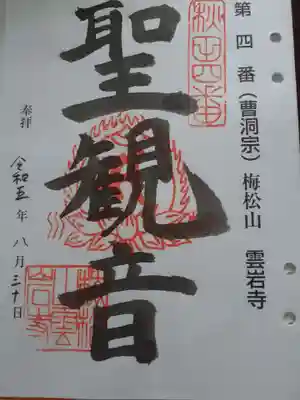 第四番（曹洞宗）梅松山 雲岩寺
秋田四番
聖観音
奉拝
令和五年八月三十日